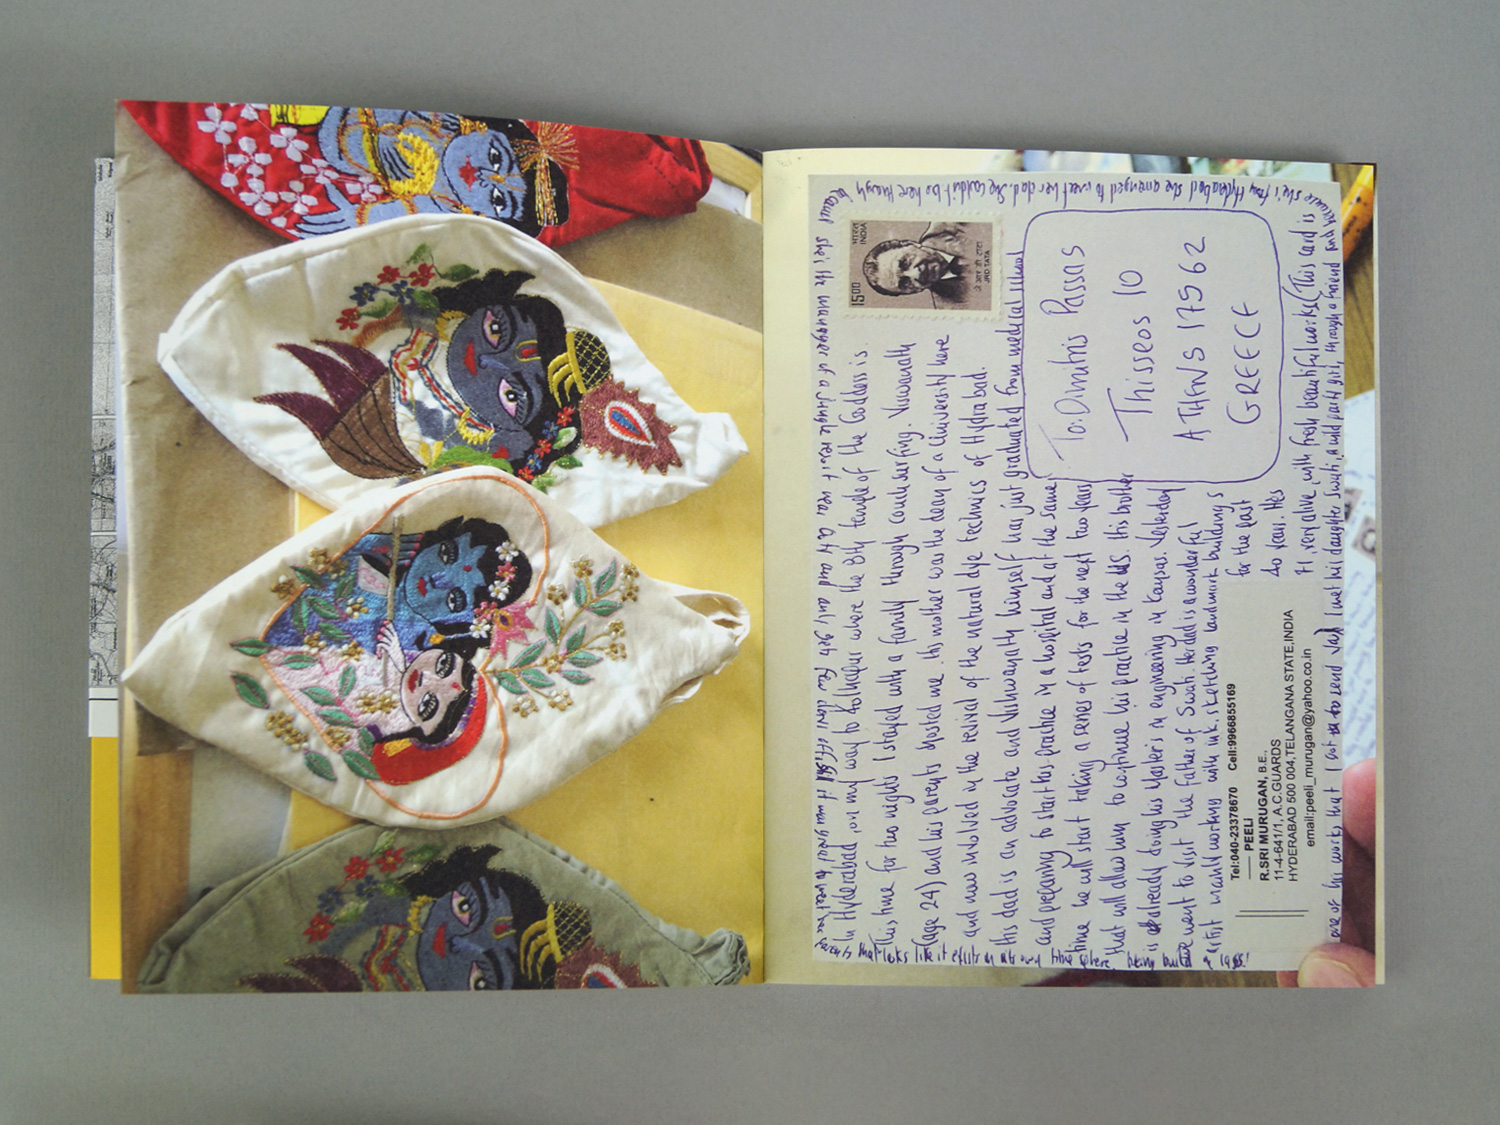 In Hyderabad, on my way to Kolhapur where the 8th temple of the Goddess is.
This time for two nights I stayed with a family through couchsurfing. Viswanath
(age 24) and his parents hosted me. His mother was the dean of a University here
and now involved in the revival of the natural dye technics of Hydrabad.
His dad is an advocate and Vishwanath himself has just graduated from medical school
and preparing to start his practice in a hospital and at the same
time he will start taking a series of tests for the next two years
that will allow him to continue his practice in the US. His brother
is already doing his Master's in engineering in Kansas. Yesterday
went to visit the father of Swati. Her dad is a wonderful
artist mainly working with ink, sketching landmark buildings
for the last
40 years. He's
71, very alive, with fresh beautiful works (This card is
one of his works that I got to send you). I met his daughter Swati, a wild party girl, through a friend and because
she's from Hyderabad she arranged to meet her dad. She couldn't be here though
because she's the manager of a jungle resort near and only gets few days off, but it was great to meet
that looks like it exists in its own time where
To: Dimitris Passas
Thisseos 10
ATHENS 17562
GREECE
भारत
INDIA
1500
जे आर डी टाटा
JRD TATA
Tel:040-23378670 Cell:9966855169
PEELI
R.SRI MURUGAN, B.E.,
11-4-641/1, A.C.GUARDS
HYDERABAD 500 004,TELANGANA STATE,INDIA
email:peeli_murugan@yahoo.co.in